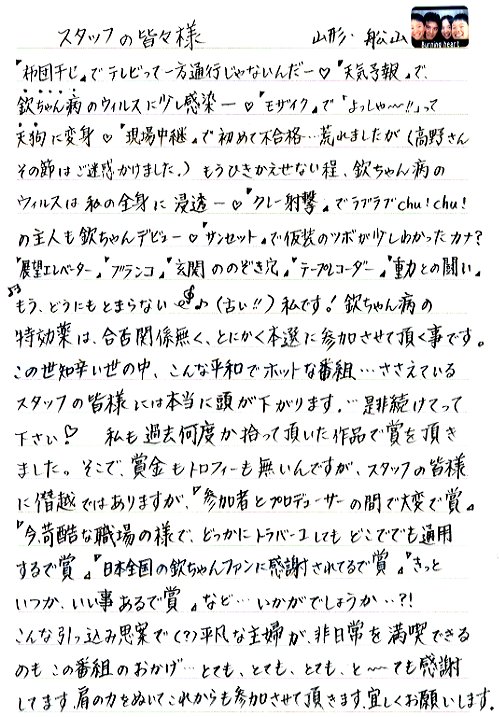 スタッフの皆々様 山形・舩山
burning heart
『柿団干じ』でテレビって一方通行じゃないんだー♡『天気予報』で、
欽ちゃん病のウィルスに少し感染ー♡『モザイク』で「よっしゃ〜!!」って
天狗に変身♡『現場中継』で初めて不合格…荒れましたが(高野さん
その節はご迷惑かけました。)もうひきかえせない程、欽ちゃん病の
ウィルスは私の全身に浸透ー♡『クレー射撃』でラブラブchu!chu!
の主人も欽ちゃんデビュー♡『サンセット』で仮装のツボが少しわかったカナ?
『展望エレベーター』『ブランコ』『玄関ののぞき穴』『テープレコーダー』『重力との闘い』
もう、どうにもとまらない♪(古い!!)私です!欽ちゃん病の
特効薬は、合否関係無く、とにかく本選に参加させて頂く事です。
この世知辛い世の中、こんな平和でホットな番組…ささえている
スタッフの皆様には本当に頭が下がります。…是非続けてって
下さい♡ 私も過去何度か拾って頂いた作品で賞を頂き
ました。そこで、賞金もトロフィーも無いんですが、スタッフの皆様
に僭越ではありますが、『参加者とプロデューサーの間で大変で賞』
『今、苛酷な職場の様で、どっかにトラバーユしてもどこででも通用
するで賞』『日本全国の欽ちゃんファンに感謝されてるで賞』『きっと
いつか、いい事あるで賞』など…いかがでしょうか…?!
こんな引っ込み思案で(?)平凡な主婦が、非日常を満喫できる
のもこの番組のおかげ…とても、とても、とても、と〜ても感謝
してます。肩の力をぬいてこれからも参加させて頂きます。宜しくお願いします。